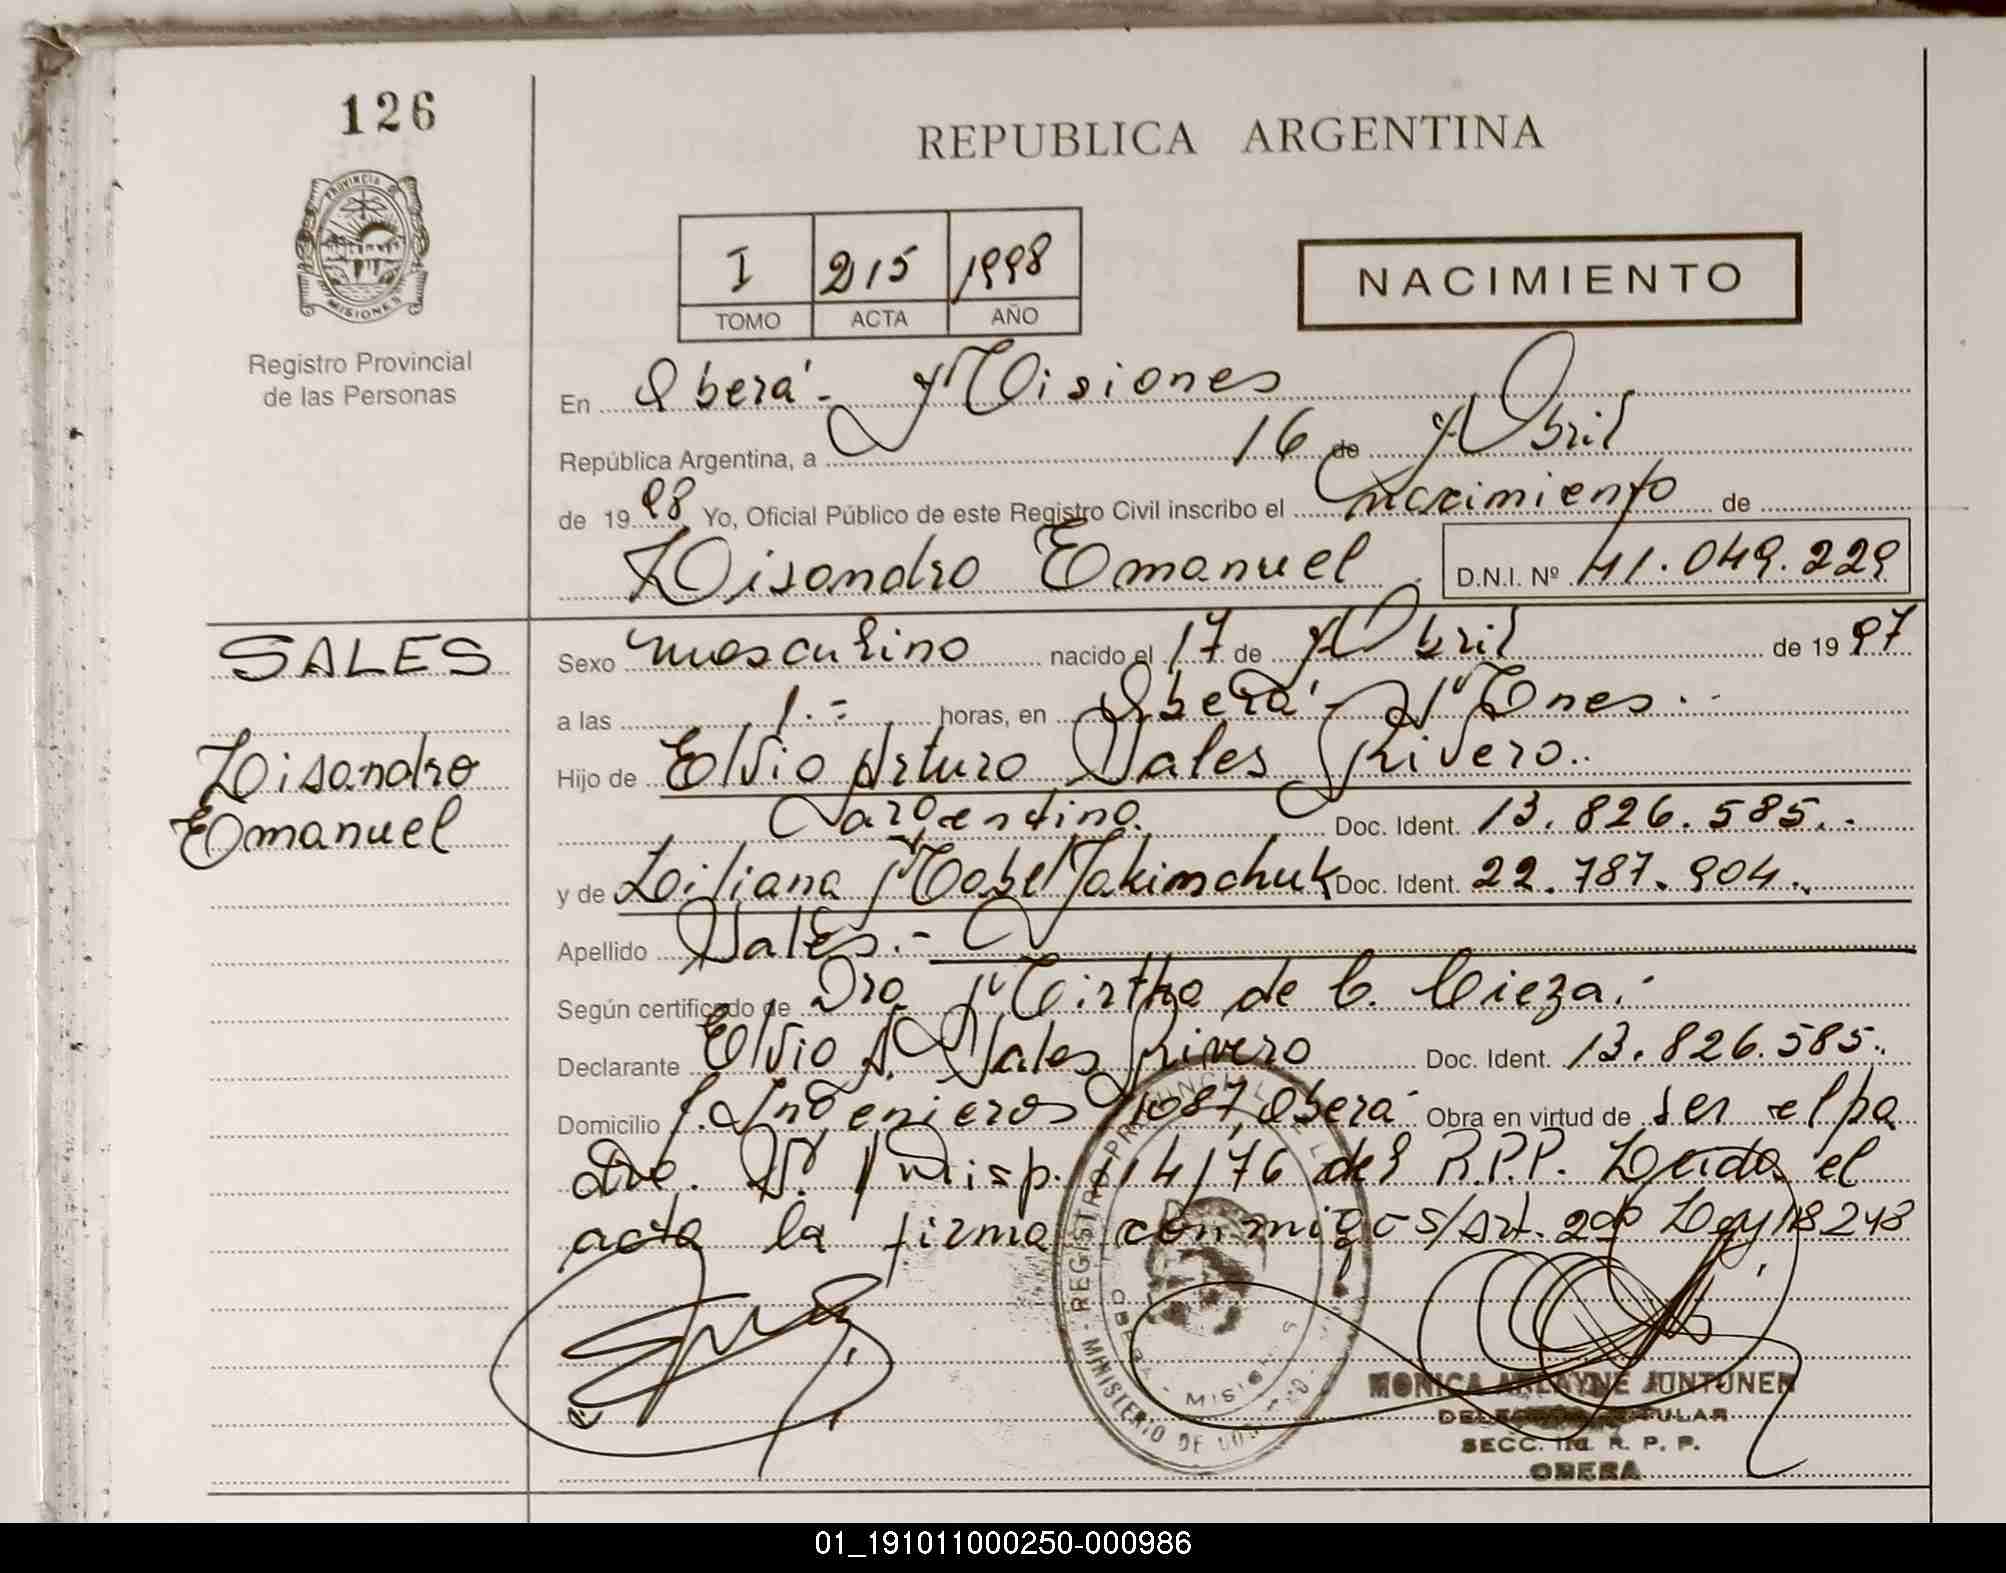 126
REPUBLICA ARGENTINA
PROVINCIA DE
MISIONES
Registro Provincial
de las Personas
I 215 1998
TOMO ACTA AÑO
NACIMIENTO
En Oberá - Misiones
República Argentina, a 16 de Abril
de 19 98 Yo, Oficial Público de este Registro Civil inscribo el nacimiento de
Lisandro Emanuel D.N.I. Nº 41.049.229
SALES
Lisandro
Emanuel
Sexo masculino nacido el 17 de Abril de 19 97
a las 1.= horas, en Oberá - Mnes.
Hijo de Elvio Arturo Sales Rivero.
argentino. Doc. Ident. 13.826.585.-
y de Liliana Mabel Jakimchuk Doc. Ident. 22.787.904.
Apellido Sales.-
Según certificado de Dra Mirtha de C. Cieza.
Declarante Elvio A. Sales Rivero Doc. Ident. 13.826.585.
Domicilio J. Ingenieros 1087, Oberá Obra en virtud de ser el pa
dre. S/ Disp. 114/76 del R.P.P. Leída el
acta la firma conmigo s/Art. 2do Ley 18248
MONICA ARLAYNE JUNTUNEN
TITULAR
SECC. R. P. P.
OBERA
REGISTRO PROVINCIAL DE LAS
MINISTERIO DE GOBIERNO
OBERA - MISIONES
01_191011000250-000986